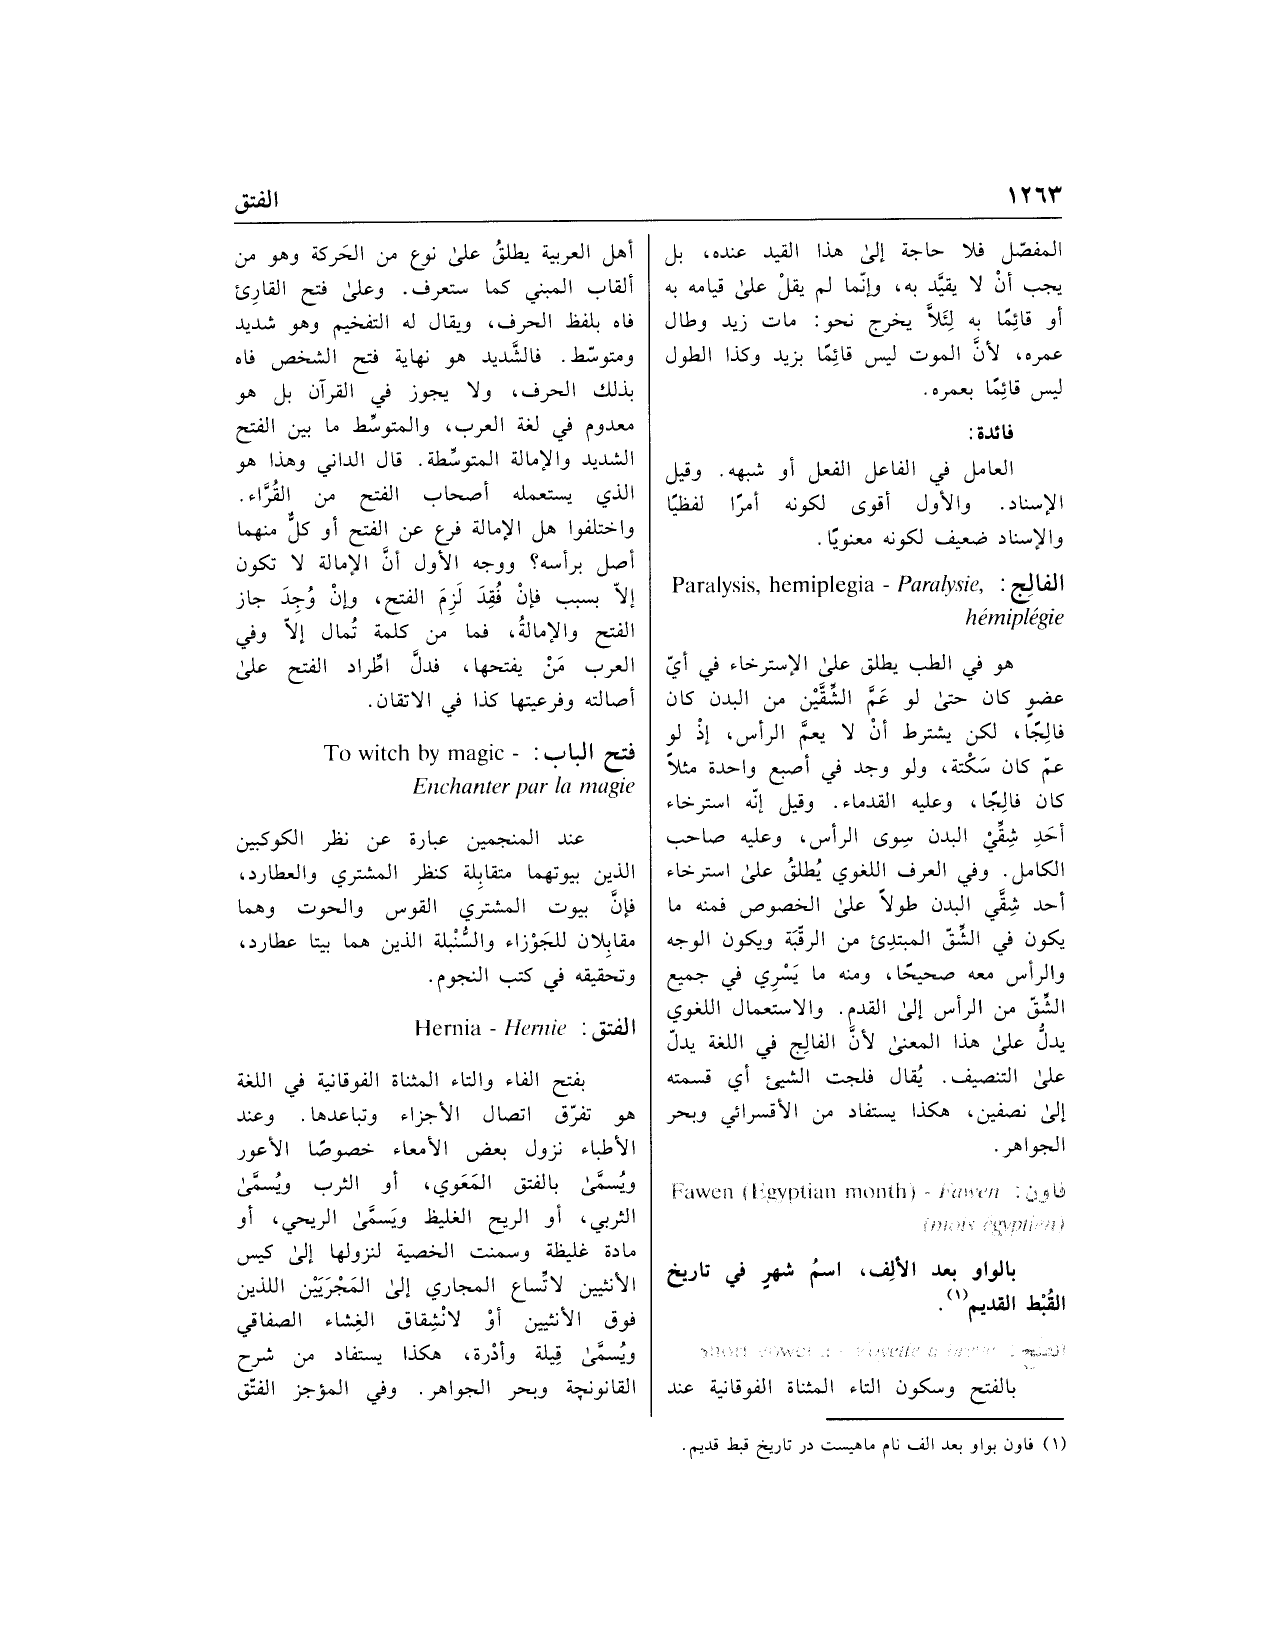 ١٢٦٣
الفتق
المفصّل فلا حاجة إلىٰ هذا القيد عنده، بل
يجب أنْ لا يقيَّد به، وإنّما لم يقلْ علىٰ قيامه به
أو قائِمًا به لِئَلاَّ يخرج نحو: مات زيد وطال
عمره، لأنَّ الموت ليس قائِمًا بزيد وكذا الطول
ليس قائِمًا بعمره.
فائدة:
العامل في الفاعل الفعل أو شبهه. وقيل
الإسناد. والأول أقوى لكونه أمرًا لفظيًا
والإسناد ضعيف لكونه معنويًا.
الفالِج: Paralysis, hemiplegia - Paralysie,
hémiplégie
هو في الطب يطلق علىٰ الإسترخاء في أيّ
عضوٍ كان حتىٰ لو عَمَّ الشِّقَّيْن من البدن كان
فالِجًا، لكن يشترط أنْ لا يعمَّ الرأس، إذْ لو
عمّ كان سَكْتة، ولو وجد في أصبع واحدة مثلاً
كان فالِجًا، وعليه القدماء. وقيل إنّه استرخاء
أحَدِ شِقِّيْ البدن سِوى الرأس، وعليه صاحب
الكامل. وفي العرف اللغوي يُطلقُ علىٰ استرخاء
أحد شِقَّي البدن طولاً علىٰ الخصوص فمنه ما
يكون في الشِّقّ المبتدِئ من الرقَبَة ويكون الوجه
والرأس معه صحيحًا، ومنه ما يَسْرِي في جميع
الشِّقّ من الرأس إلىٰ القدم. والاستعمال اللغوي
يدلُّ علىٰ هذا المعنىٰ لأنَّ الفالِج في اللغة يدلّ
علىٰ التنصيف. يُقال فلجت الشيئ أي قسمته
إلىٰ نصفين، هكذا يستفاد من الأقسرائي وبحر
الجواهر.
فاون: Fawen (Egyptian month) - Fawen
(mois égyptien)
بالواو بعد الألِف، اسمُ شهرٍ في تاريخ
القُبْط القديم(١).
بالفتح وسكون التاء المثناة الفوقانية عند
(١) فاون بواو بعد الف نام ماهيست در تاريخ قبط قديم.
أهل العربية يطلقُ علىٰ نوع من الحَركة وهو من
ألقاب المبني كما ستعرف. وعلىٰ فتح القارِئ
فاه بلفظ الحرف، ويقال له التفخيم وهو شديد
ومتوسّط. فالشَّديد هو نهاية فتح الشخص فاه
بذلك الحرف، ولا يجوز في القرآن بل هو
معدوم في لغة العرب، والمتوسِّط ما بين الفتح
الشديد والإمالة المتوسِّطة. قال الداني وهذا هو
الذي يستعمله أصحاب الفتح من القُرَّاء.
واختلفوا هل الإمالة فرع عن الفتح أو كلٌّ منهما
أصل برأسه؟ ووجه الأول أنَّ الإمالة لا تكون
إلاّ بسبب فإنْ فُقِدَ لَزِمَ الفتح، وإنْ وُجِدَ جاز
الفتح والإمالةُ، فما من كلمة تُمال إلاّ وفي
العرب مَنْ يفتحها، فدلَّ اطِّراد الفتح علىٰ
أصالته وفرعيتها كذا في الاتقان.
فتح الباب: To witch by magic -
Enchanter par la magie
عند المنجمين عبارة عن نظر الكوكبين
الذين بيوتهما متقابِلة كنظر المشتري والعطارد،
فإنَّ بيوت المشتري القوس والحوت وهما
مقابِلان للجَوْزاء والسُّنْبلة الذين هما بيتا عطارد،
وتحقيقه في كتب النجوم.
الفتق: Hernia - Hernie
بفتح الفاء والتاء المثناة الفوقانية في اللغة
هو تفرّق اتصال الأجزاء وتباعدها. وعند
الأطباء نزول بعض الأمعاء خصوصًا الأعور
ويُسمَّىٰ بالفتق المَعَوي، أو الثرب ويُسمَّىٰ
الثربي، أو الريح الغليظ ويَسمَّىٰ الريحي، أو
مادة غليظة وسمنت الخصية لنزولها إلىٰ كيس
الأنثيين لاتِّساع المجاري إلىٰ المَجْرَيَيْن اللذين
فوق الأنثيين أوْ لانْشِقاق الغِشاء الصفاقي
ويُسمَّىٰ قِيلة وأدْرة، هكذا يستفاد من شرح
القانونچة وبحر الجواهر. وفي المؤجز الفتّق